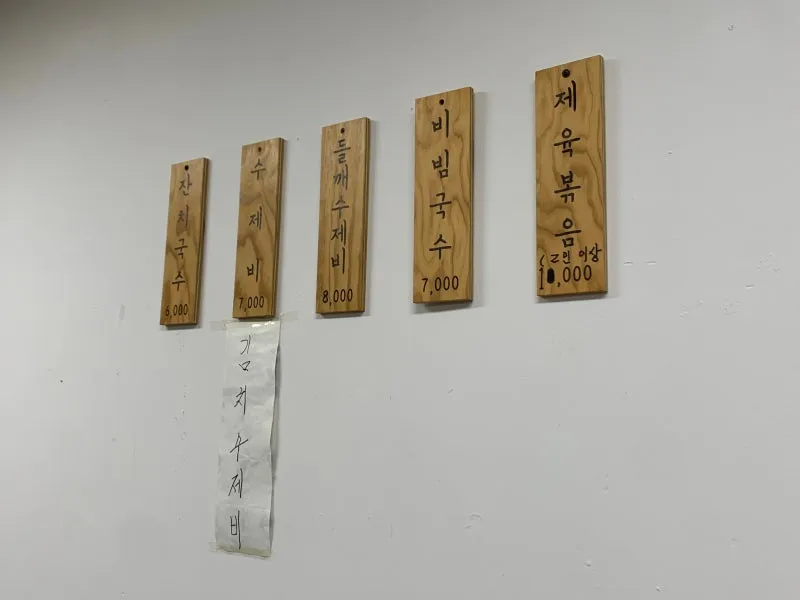 잔치국수
6,000
수제비
7,000
김치수제비
들깨수제비
8,000
비빔국수
7,000
제육볶음
(2인 이상
,000